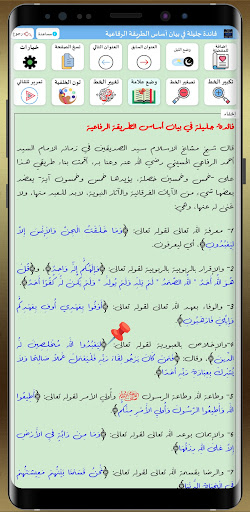 فائدة جليلة في بيان أساس الطريقة الرفاعية
مساعدة
رجوع
خيارات
نسخ الصفحة
العنوان التالي
العنوان السابق
وضع الليل
إضافة للمفضلة
تمرير تلقائي
لون الخلفية
تغيير الخط
وضع علامة
تصغير الخط
تكبير الخط
إخفاء
فائدة جليلة في بيان أساس الطريقة الرفاعية
قال شيخ مشايخ الإسلام سيد الصديقين في زمانه الإمام السيد
أحمد الرفاعي الحسيني رضي الله عنه وعنا به، أسست بناء طريقي هذا
على خمس وخمسين خصلة، يؤيدها خمس وخمسون آية، بعضد
بعضها شيء من الآيات القرءانية والآثار النبوية، لابد للعبد منها، ولا
غنى له عنها، وهي:
1- معرفة الله لقوله تعالى: ﴿وَمَا خَلَقْتُ الْجِنَّ وَالْإِنْسَ إِلَّا
لِيَعْبُدُونِ﴾، أي ليعرفون.
2- والإقرار بالربوبية لقوله تعالى: ﴿وَإِلَهُكُمْ إِلَهٌ وَاحِدٌ﴾، و﴿قُلْ
هُوَ اللَّهُ أَحَدٌ * اللَّهُ الصَّمَدُ * لَمْ يَلِدْ وَلَمْ يُولَدْ * وَلَمْ يَكُنْ لَهُ كُفُوًا أَحَدٌ﴾.
3- والوفاء بعهد الله لقوله تعالى: ﴿أَوْفُوا بِعَهْدِي أُوفِ بِعَهْدِكُمْ
وَإِيَّايَ فَارْهَبُونِ﴾.
4- والإخلاص بالعبودية لقوله تعالى: ﴿لِيَعْبُدُوا اللَّهَ مُخْلِصِينَ لَهُ
الدِّينَ﴾، وقال: ﴿فَمَنْ كَانَ يَرْجُو لِقَاءَ رَبِّهِ فَلْيَعْمَلْ عَمَلًا صَالِحًا وَلَا
يُشْرِكْ بِعِبَادَةِ رَبِّهِ أَحَدًا﴾.
5- وطاعة لله وطاعة الرسول ﷺ وأُولي الأمر لقوله تعالى: ﴿أَطِيعُوا
اللَّهَ وَأَطِيعُوا الرَّسُولَ وَأُولِي الْأَمْرِ مِنْكُمْ﴾.
6- والإيمان بوعد الله لقوله تعالى: ﴿وَمَا مِنْ دَابَّةٍ فِي الْأَرْضِ
إِلَّا عَلَى اللَّهِ رِزْقُهَا﴾.
7- والرضا بقسمة الله لقوله تعالى: ﴿نَحْنُ قَسَمْنَا بَيْنَهُمْ مَعِيشَتَهُمْ
فِي الْحَيَاةِ الدُّنْيَا﴾.